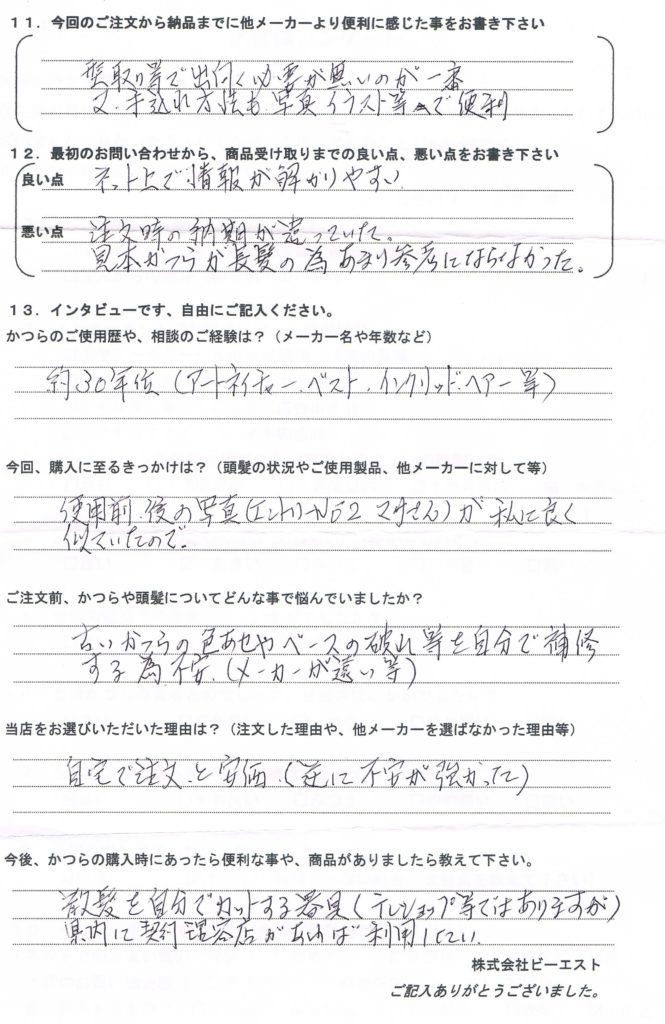 11．今回のご注文から納品までに他メーカーより便利に感じた事をお書き下さい
型取り等で出向く必要が無いのが一番
又、手込れ方法も写真イラスト等で便利
12．最初のお問い合わせから、商品受け取りまでの良い点、悪い点をお書き下さい
良い点 ネット上で情報が解かりやすい
悪い点 注文時の納期が違っていた。
見本かつらが長髪の為あまり参考にならなかった。
13．インタビューです、自由にご記入ください。
かつらのご使用歴や、相談のご経験は？（メーカー名や年数など）
約30年位（アートネイチャー、ベスト、イングリッド、ヘアー等）
今回、購入に至るきっかけは？（頭髪の状況やご使用製品、他メーカーに対して等）
使用前.後の写真(エントリーNo52 マサさん)が私に良く
似ていたので。
ご注文前、かつらや頭髪についてどんな事で悩んでいましたか？
古いかつらの色あせやベースの破れ等を自分で補修
する為不安.（メーカーが遠い等）
当店をお選びいただいた理由は？（注文した理由や、他メーカーを選ばなかった理由等）
自宅で注文.と安価.（逆に不安が強かった）
今後、かつらの購入時にあったら便利な事や、商品がありましたら教えて下さい。
散髪を自分でカットする器具（テレショップ等ではありますが）
県内に契約理容店があれば利用したい.
株式会社ビーエスト
ご記入ありがとうございました。